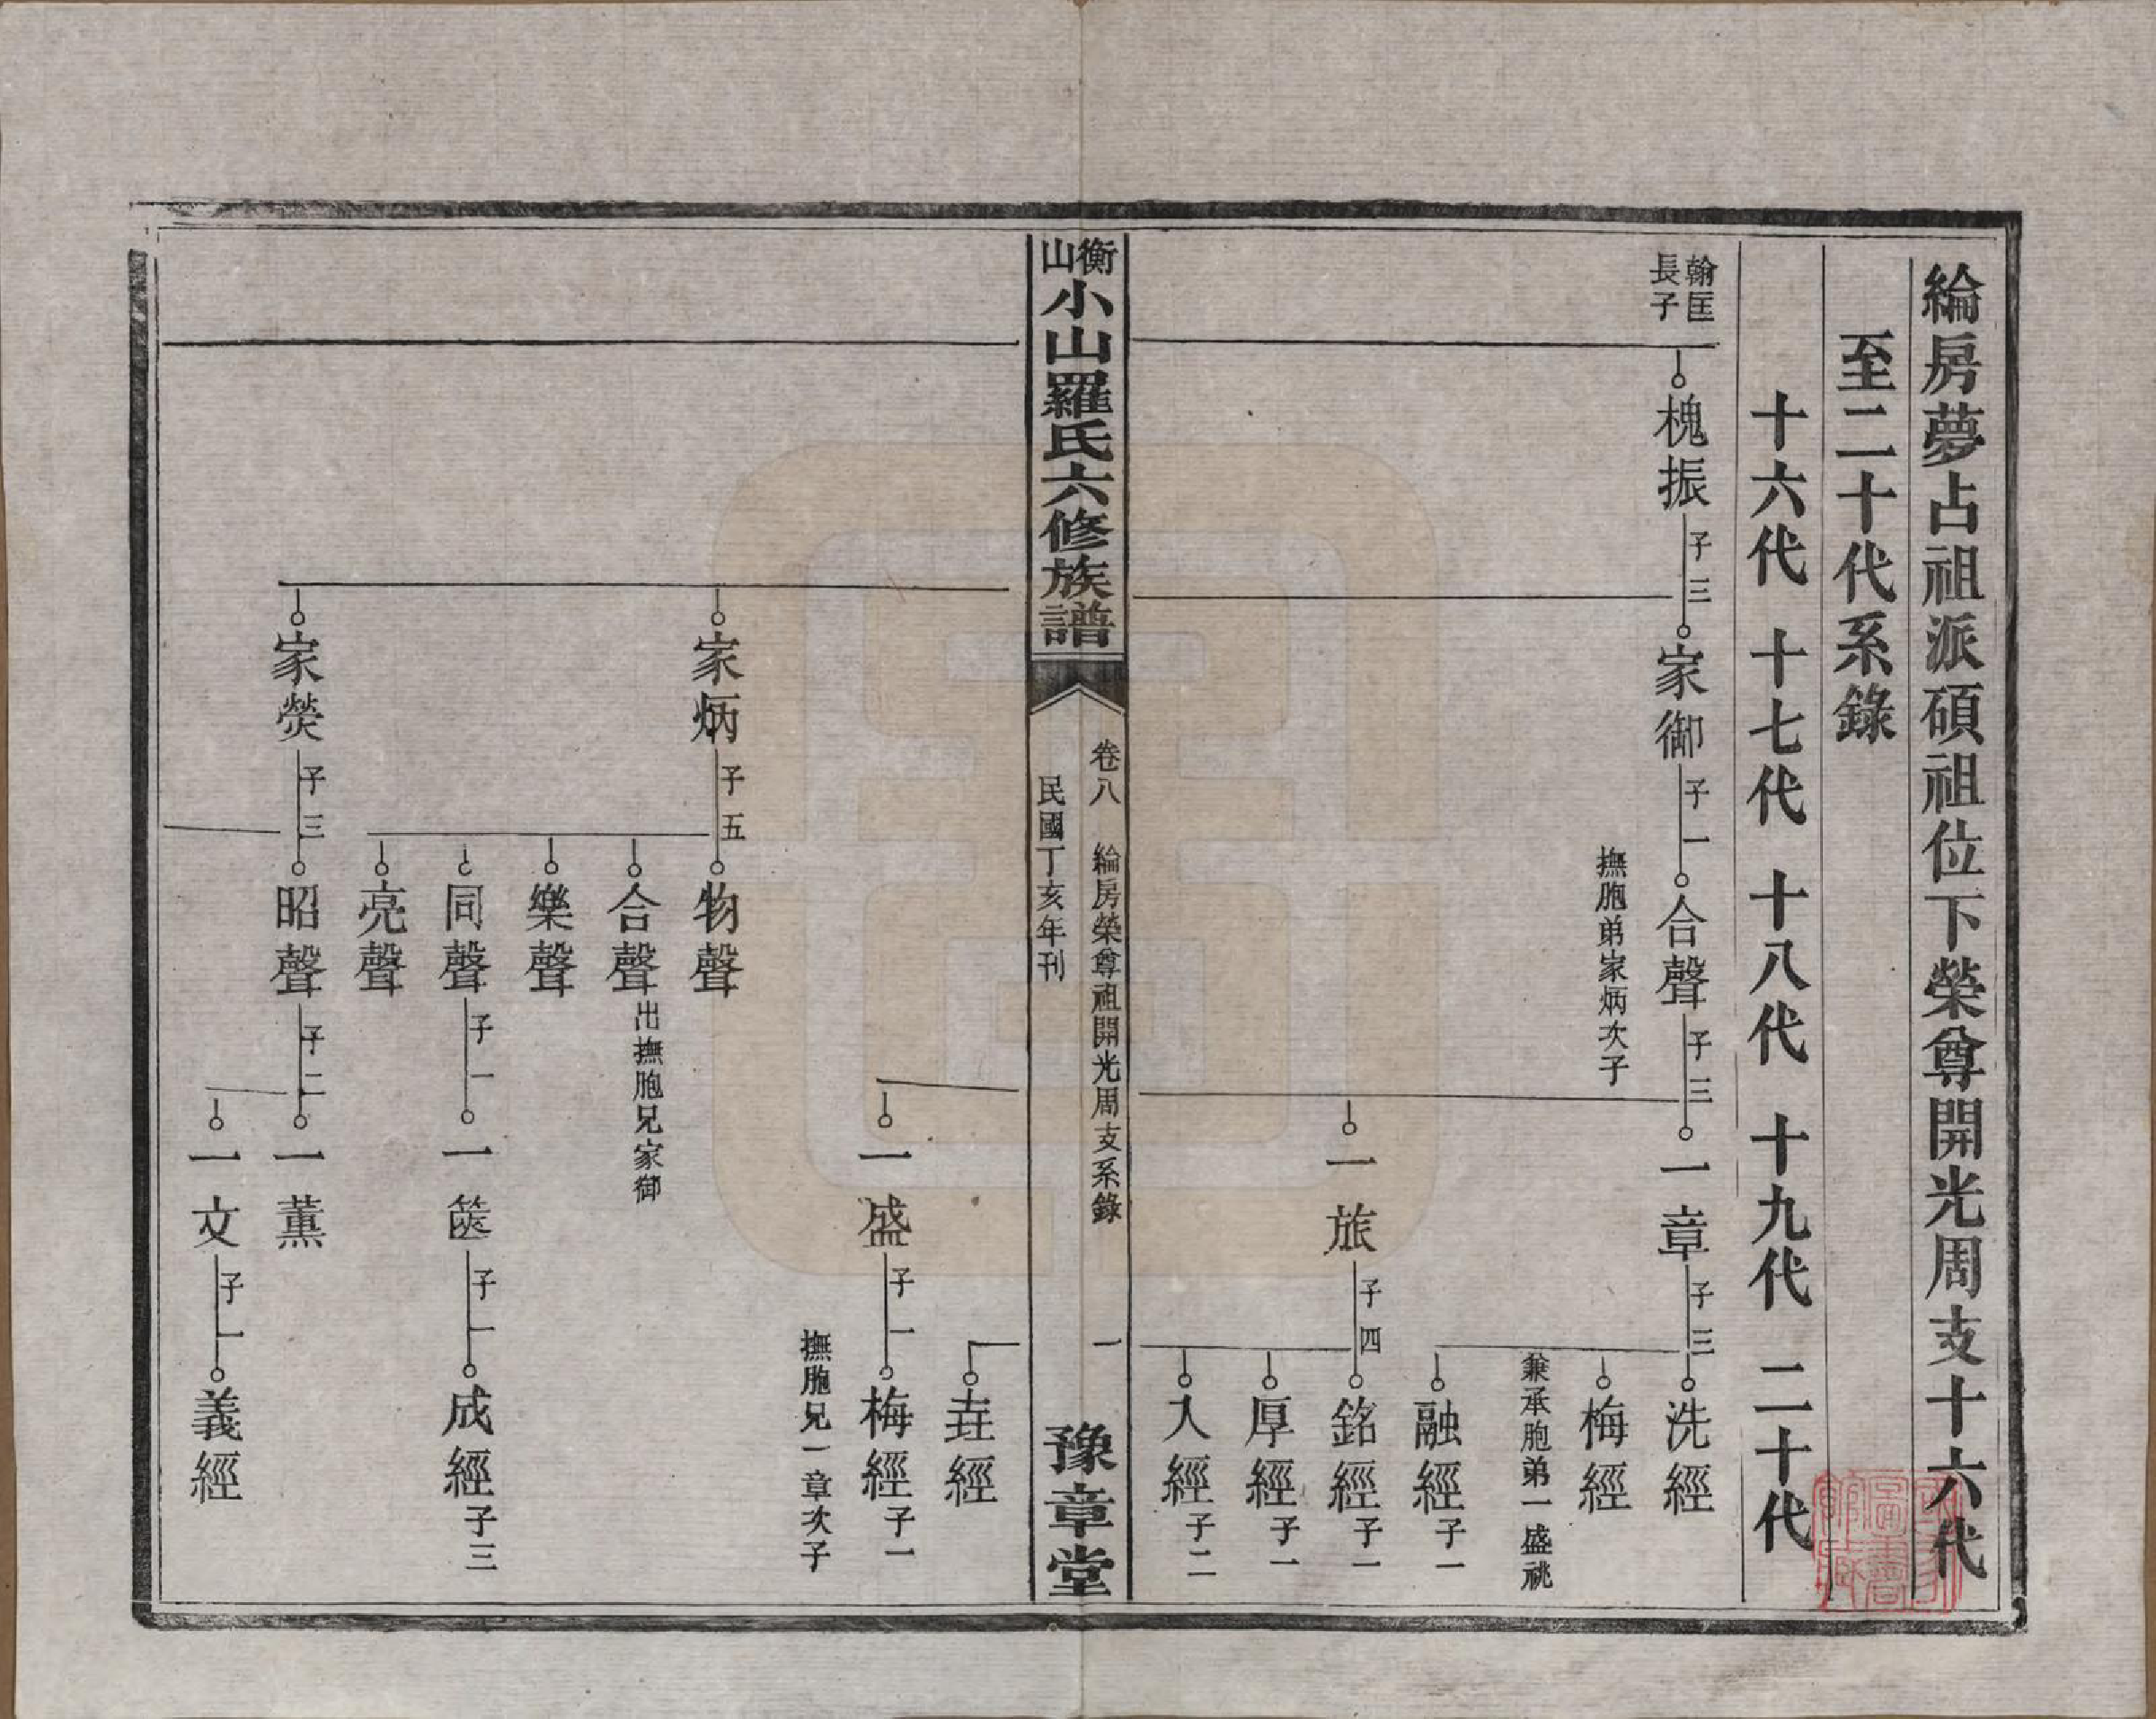 綸房夢占祖派碩祖位下榮尊開光周支十六代
至二十代系錄
十六代 十七代 十八代 十九代 二十代
翰匡
長子
槐振 子三 家御 子一 合聲 子三 一章 子三 洗經
撫胞弟家炳次子
梅經
兼承胞弟一盛祧
融經 子一
一旅 子四 銘經 子一
厚經 子一
人經 子二
衡山小山羅氏六修族譜
卷八 綸房榮尊祖開光周支系錄 一
民國丁亥年刊
豫章堂
𡊮經
一盛 子一 梅經 子一
撫胞兄一章次子
家炳 子五 物聲
合聲 出撫胞兄家御
樂聲
同聲 子一 一篋 子一 成經 子三
亮聲
家熒 子三 昭聲 子二 一薰
一文 子一 義經